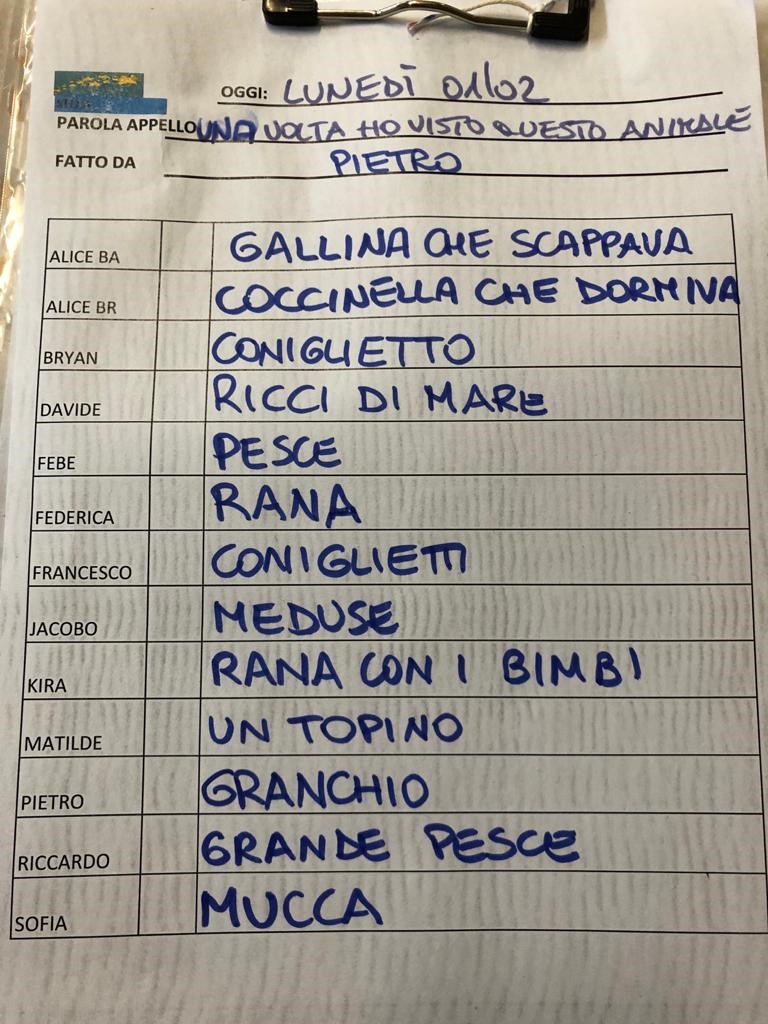 OGGI: LUNEDÌ 01/02
PAROLA APPELLO UNA VOLTA HO VISTO QUESTO ANIMALE
FATTO DA PIETRO
ALICE BA GALLINA CHE SCAPPAVA
ALICE BR COCCINELLA CHE DORMIVA
BRYAN CONIGLIETTO
DAVIDE RICCI DI MARE
FEBE PESCE
FEDERICA RANA
FRANCESCO CONIGLIETTI
JACOBO MEDUSE
KIRA RANA CON I BIMBI
MATILDE UN TOPINO
PIETRO GRANCHIO
RICCARDO GRANDE PESCE
SOFIA MUCCA